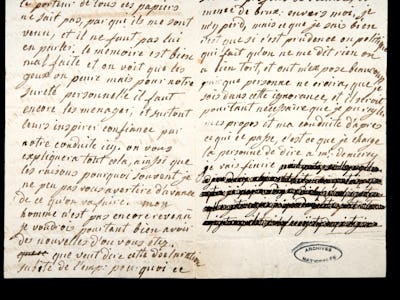 le porteur de tous ces papiers
ne sait pas, par que ils me sont
venu, et il ne faut pas lui
en parler. le memoire est bien
mal faite et on voit que les
gens on peure mais pour
sureté personnelle il faut
encore les menager, et surtout
leurs inspirer confiance par
notre conduite ici, on vous
expliquera tout cela, ainsi que
les raisons pourquoi souvent je
ne peu pas vous avertire d'avance
de ce qu'on va faire. mon
homme n'est pas encore revenu
je voudrois pourtant bien avoir
des nouvelles d'ou vous etez.
que veut dire cette declaration
subite de l'emp: pourquoi ce
envers moi, je
m'y perd, mais ce que je sais bien
c'est que si c'est prudence ou politique
qui fait qu'on ne me dit rien on
a bien tort, et ont m'expose beaucoup
puis que personne ne croira, que je
sois dans cette ignorence, il seroit
pourtant necessaire que je
mes propos et ma conduite d'après
ce qui ce passe, c'est ce que je charge
la personne de dire a mr. de mercy.
je vais finire
ARCHIVES
NATIONALES